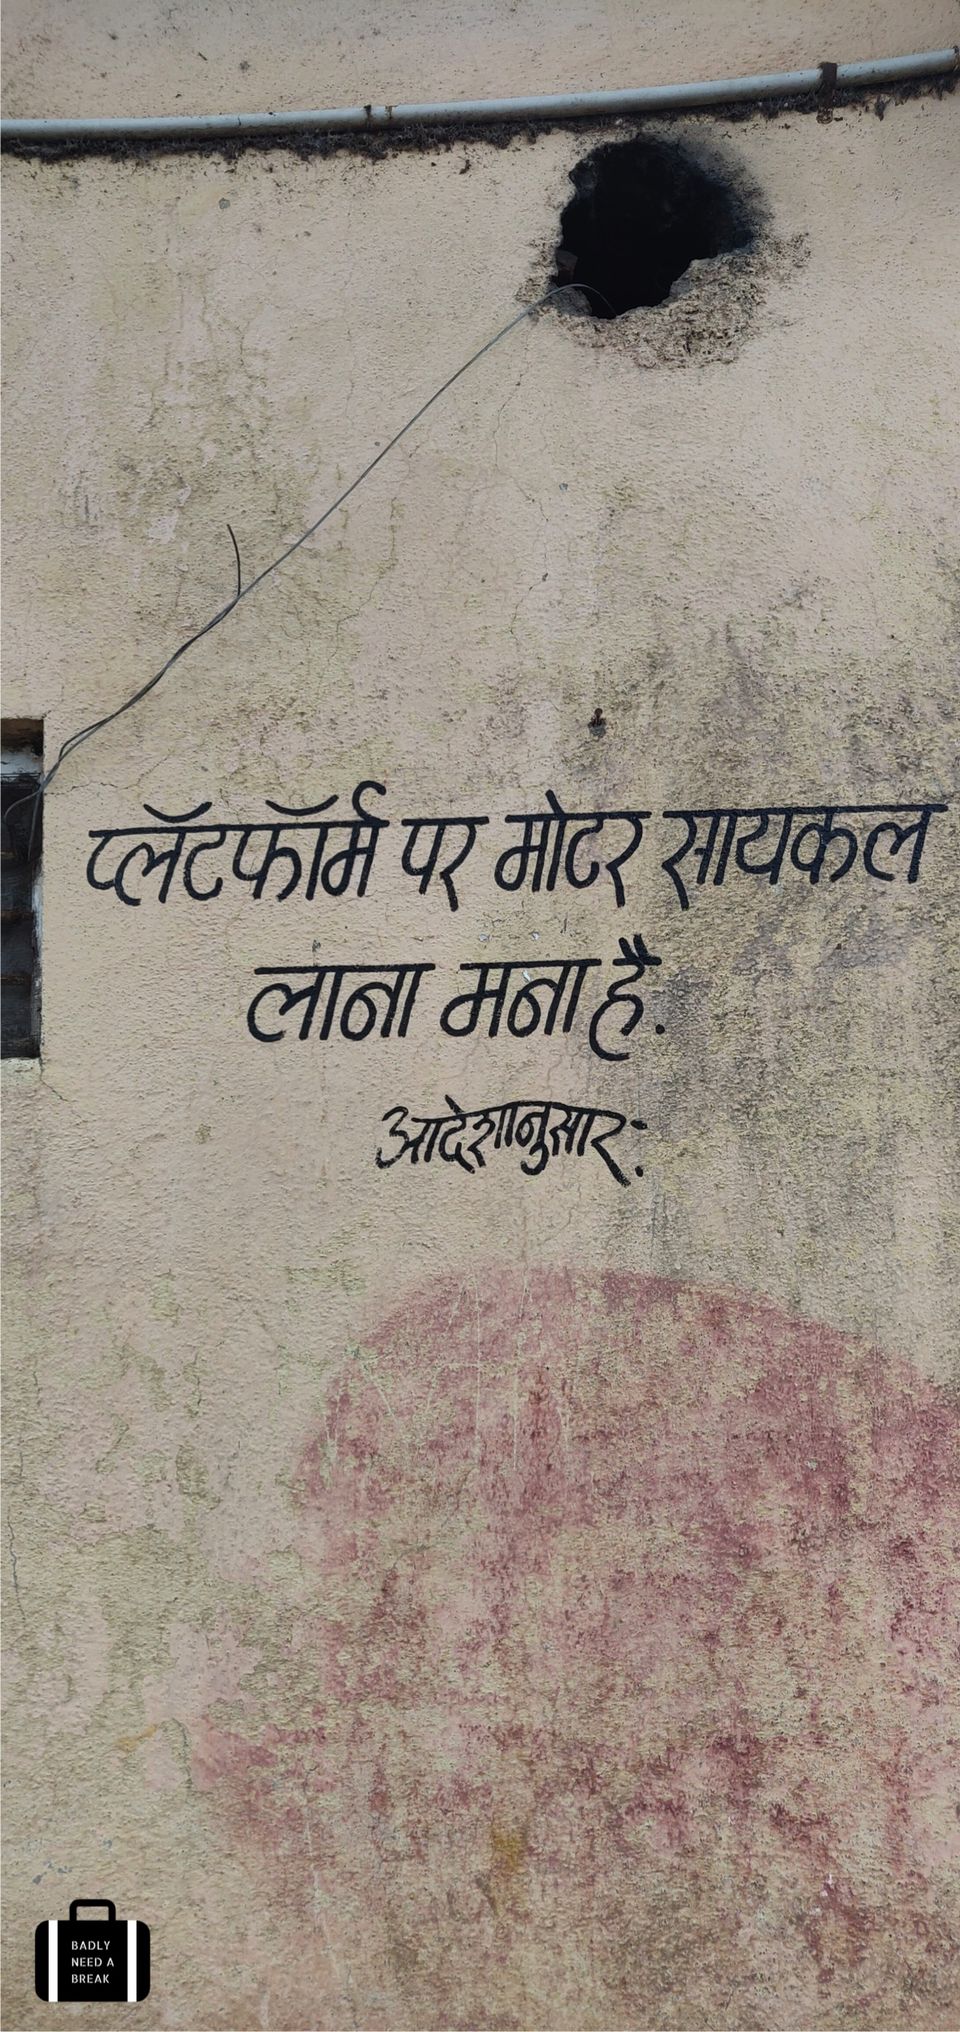 प्लॅटफॉर्म पर मोटर सायकल
लाना मना है.
आदेशानुसार:
BADLY
NEED A
BREAK